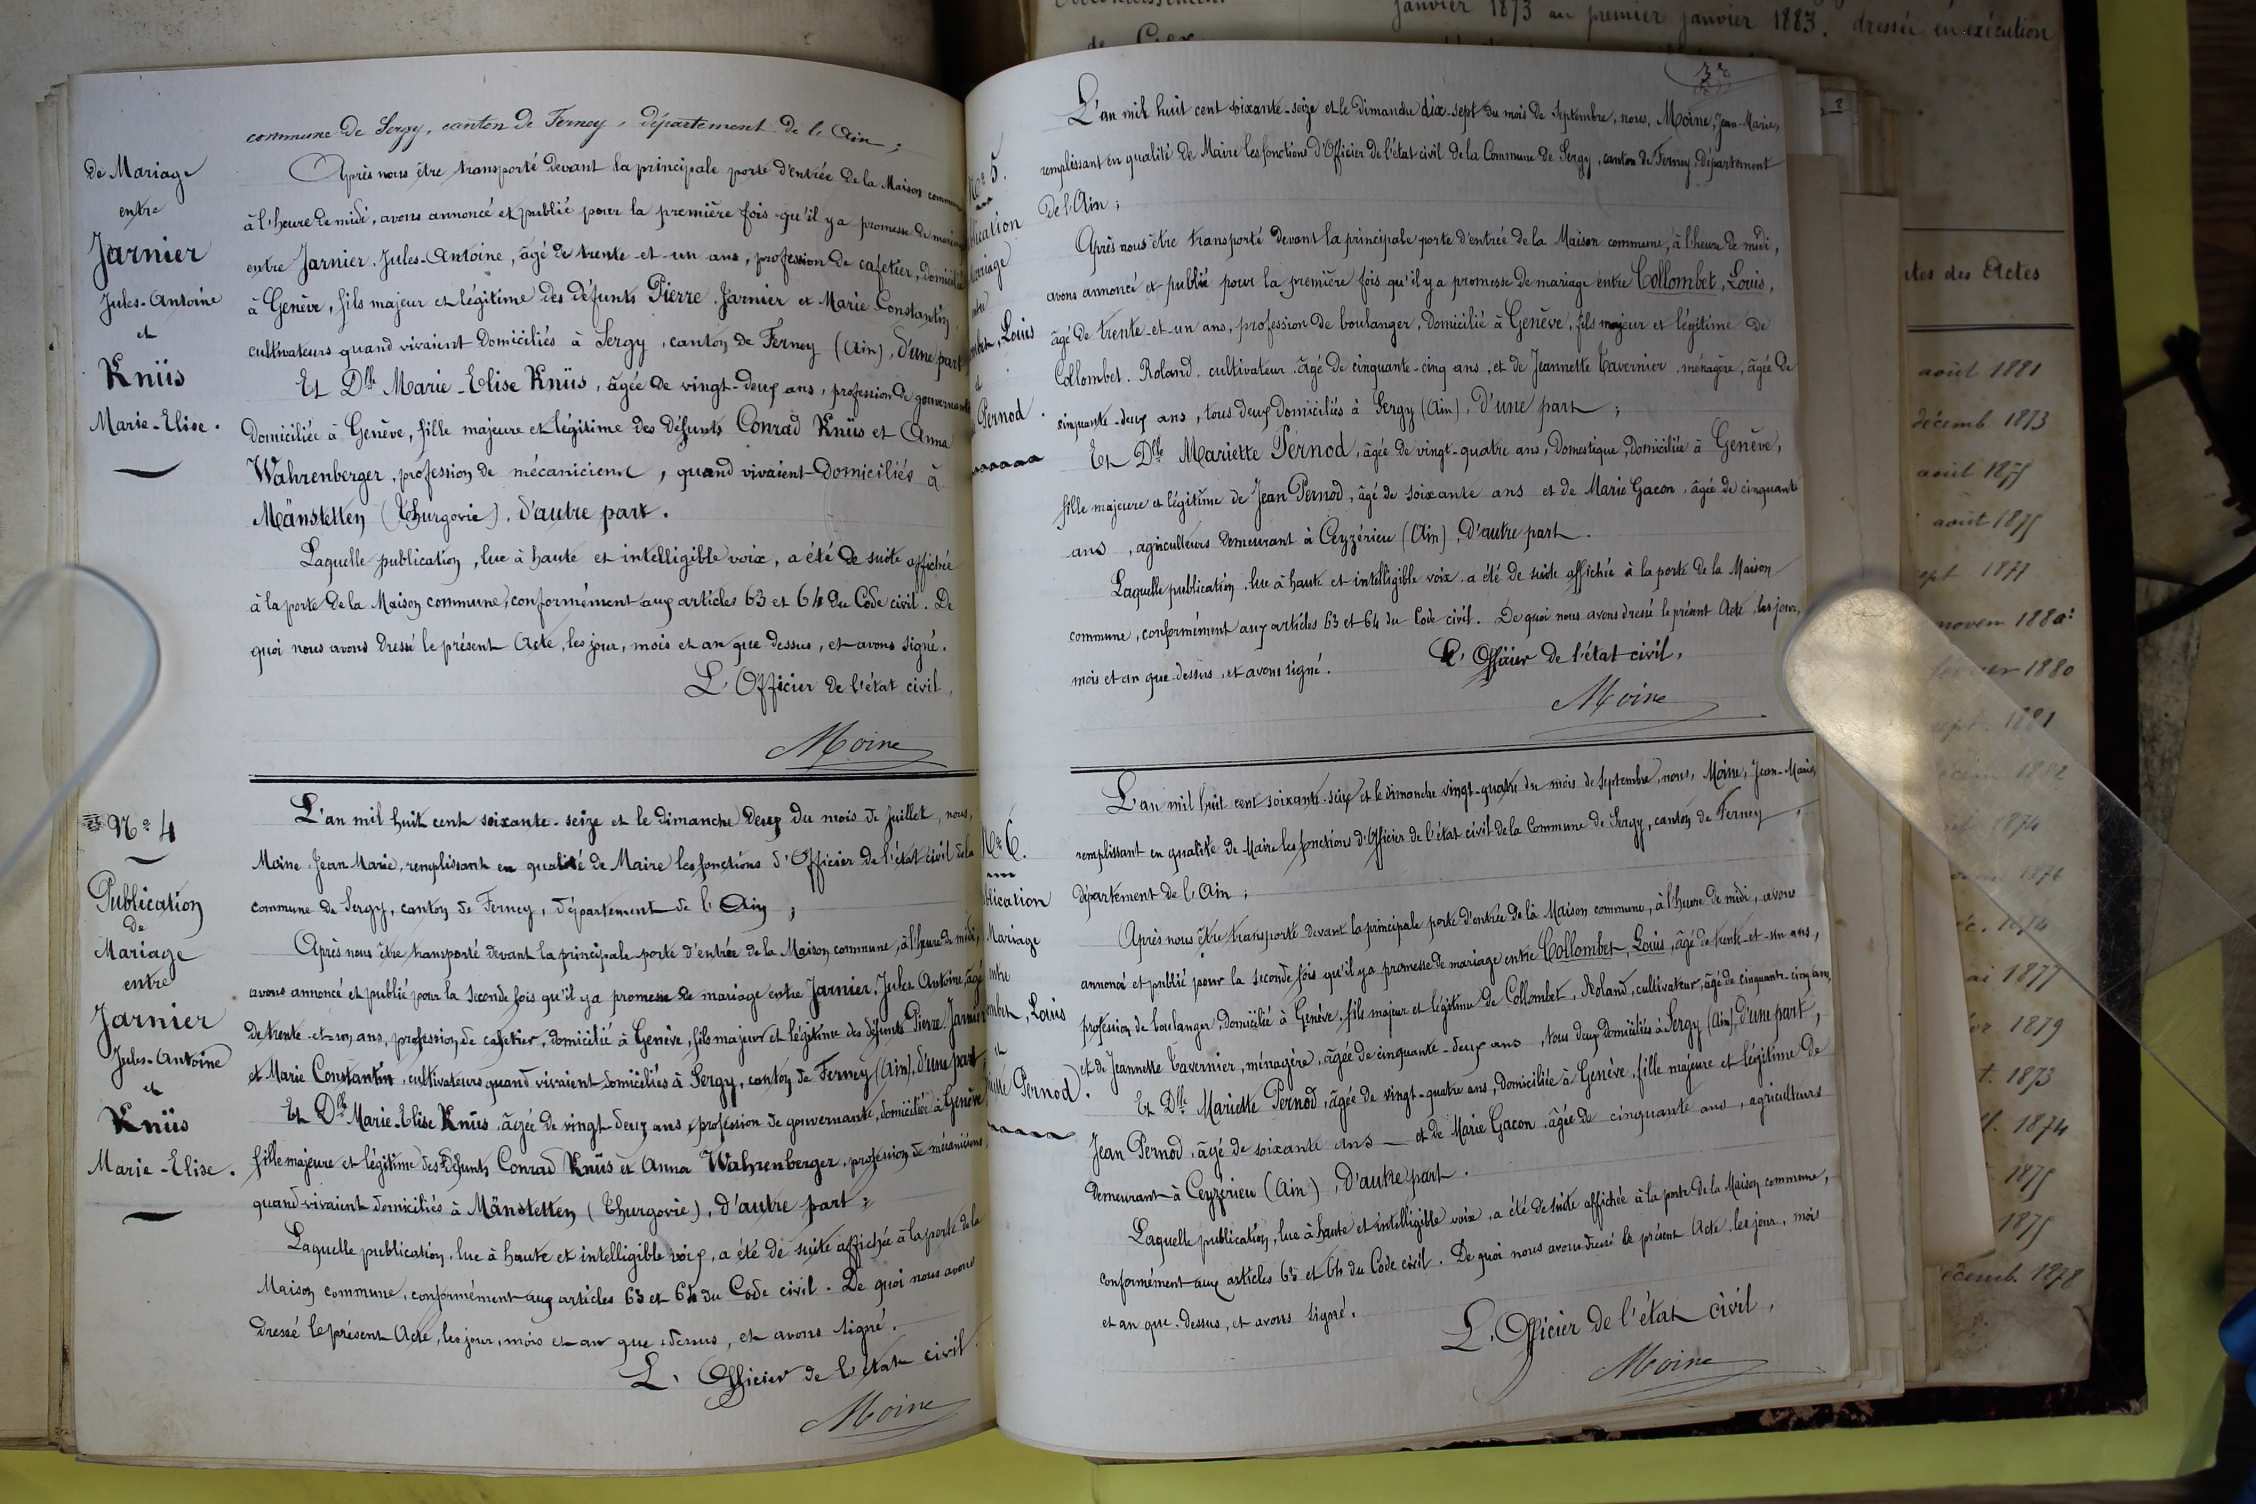 commune de Sergy, canton de Ferney, département de l'Ain ;
de Mariage
entre
Jarnier
Jules-Antoine
et
Knüs
Marie-Elise.
Après nous être transporté devant la principale porte d'entrée de la Maison commune
à l'heure de midi, avons annoncé et publié pour la première fois qu'il y a promesse de mariage
entre Jarnier, Jules-Antoine, âgé de trente-et-un ans, profession de cafetier, domicilié
à Genève, fils majeur et légitime des défunts Pierre Jarnier et Marie Constantin,
cultivateurs quand vivaient domiciliés à Sergy, canton de Ferney (Ain), d'une part
Et Dlle Marie-Elise Knüs, âgée de vingt-deux ans, profession de gouvernante
domiciliée à Genève, fille majeure et légitime des défunts Conrad Knüs et Anna
Wahrenberger, profession de mécanicien, quand vivaient domiciliés à
Mänstetten (Thurgovie), d'autre part.
Laquelle publication, lue à haute et intelligible voix, a été de suite affichée
à la porte de la Maison commune, conformément aux articles 63 et 64 du Code civil. De
quoi nous avons dressé le présent Acte, les jour, mois et an que dessus, et avons signé.
L'Officier de l'état civil,
Moine
No 4
Publication
de
Mariage
entre
Jarnier
Jules-Antoine
et
Knüs
Marie-Elise.
L'an mil huit cent soixante-seize et le dimanche Deux du mois de Juillet, nous,
Moine, Jean Marie, remplissant en qualité de Maire les fonctions d'Officier de l'état civil de la
commune de Sergy, canton de Ferney, département de l'Ain ;
Après nous être transporté devant la principale porte d'entrée de la Maison commune, à l'heure de midi,
avons annoncé et publié pour la seconde fois qu'il y a promesse de mariage entre Jarnier, Jules Antoine, âgé
de trente-et-un ans, profession de cafetier, domicilié à Genève, fils majeur et légitime des défunts Pierre Jarnier
et Marie Constantin, cultivateurs quand vivaient domiciliés à Sergy, canton de Ferney (Ain), d'une part ;
Et Dlle Marie-Elise Knüs, âgée de vingt-deux ans, profession de gouvernante, domiciliée à Genève
fille majeure et légitime des défunts Conrad Knüs et Anna Wahrenberger, profession de mécanicien,
quand vivaient domiciliés à Mänstetten (Thurgovie), d'autre part ;
Laquelle publication, lue à haute et intelligible voix, a été de suite affichée à la porte de la
Maison commune, conformément aux articles 63 et 64 du Code civil. De quoi nous avons
dressé le présent Acte, les jour, mois et an que dessus, et avons signé.
L'Officier de l'état civil.
Moine
No 5.
lication
ariage
Louis
et
Pernod.
L'an mil huit cent soixante-seize et le dimanche dix-sept du mois de Septembre, nous, Moine, Jean-Marie,
remplissant en qualité de Maire les fonctions d'Officier de l'état civil de la Commune de Sergy, canton de Ferney, département
de l'Ain ;
Après nous être transporté devant la principale porte d'entrée de la Maison commune, à l'heure de midi,
avons annoncé et publié pour la première fois qu'il y a promesse de mariage entre Collombet, Louis,
âgé de trente-et-un ans, profession de boulanger, domicilié à Genève, fils majeur et légitime de
Collombet, Roland, cultivateur, âgé de cinquante-cinq ans, et de Jeannette Tavernier, ménagère, âgée de
cinquante-deux ans, tous deux domiciliés à Sergy (Ain), d'une part ;
Et Dlle Mariette Pernod, âgée de vingt-quatre ans, domestique, domiciliée à Genève,
fille majeure et légitime de Jean Pernod, âgé de soixante ans et de Marie Gacon, âgée de cinquante
ans, agriculteurs demeurant à Ceyzérieu (Ain), d'autre part.
Laquelle publication, lue à haute et intelligible voix, a été de suite affichée à la porte de la Maison
commune, conformément aux articles 63 et 64 du Code civil. De quoi nous avons dressé le présent Acte, les jour,
mois et an que dessus, et avons signé.
L'Officier de l'état civil,
Moine
No 6.
blication
Mariage
entre
Louis
et
Pernod.
L'an mil huit cent soixante-seize et le dimanche vingt-quatre du mois de Septembre, nous, Moine, Jean-Marie,
remplissant en qualité de Maire les fonctions d'Officier de l'état civil de la Commune de Sergy, canton de Ferney,
département de l'Ain ;
Après nous être transporté devant la principale porte d'entrée de la Maison commune, à l'heure de midi, avons
annoncé et publié pour la seconde fois qu'il y a promesse de mariage entre Collombet, Louis, âgé de trente-et-un ans,
profession de boulanger, domicilié à Genève, fils majeur et légitime de Collombet, Roland, cultivateur, âgé de cinquante-cinq ans,
et de Jeannette Tavernier, ménagère, âgée de cinquante-deux ans, tous deux domiciliés à Sergy (Ain), d'une part,
Et Dlle Mariette Pernod, âgée de vingt-quatre ans, domiciliée à Genève, fille majeure et légitime de
Jean Pernod, âgé de soixante ans et de Marie Gacon, âgée de cinquante ans, agriculteurs
demeurant à Ceyzérieu (Ain), d'autre part.
Laquelle publication, lue à haute et intelligible voix, a été de suite affichée à la porte de la Maison commune,
conformément aux articles 63 et 64 du Code civil. De quoi nous avons dressé le présent Acte, les jour, mois
et an que dessus, et avons signé.
L'Officier de l'état civil,
Moine
janvier 1873 au premier janvier 1883. dressée en exécution
de Gex
des Actes
août 1881
décemb. 1873
août 1875
août 1875
sept 1877
novem 1880
février 1880
sept. 1881
1882
1874
1876
1874
1877
1879
1873
1874
1875
1875
décemb. 1878